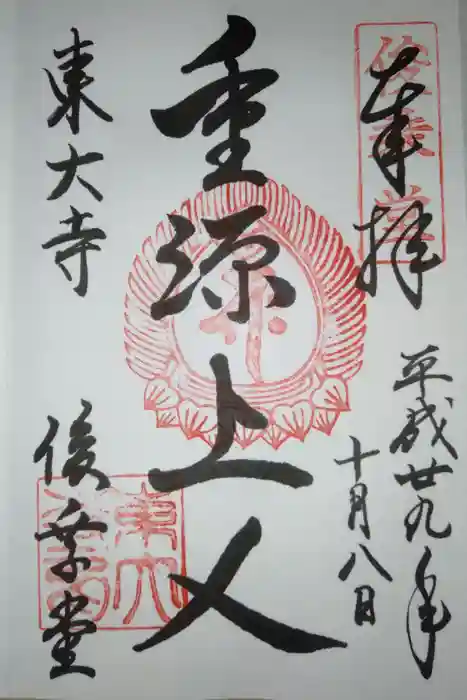 奉拝
平成廿九年
十月八日
重源上人
東大寺
俊乗堂
俊乗堂